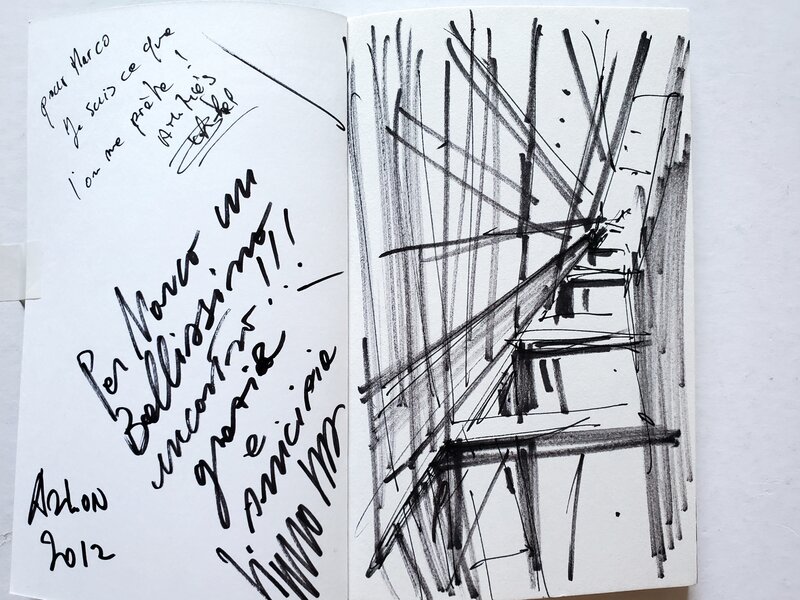 pour Marco
Je suis ce que
l'on me prête !
Amitiés
Per Marco un
Bellissimo
incontro!!!
grazie
e
Amicizia
Arlon
2012